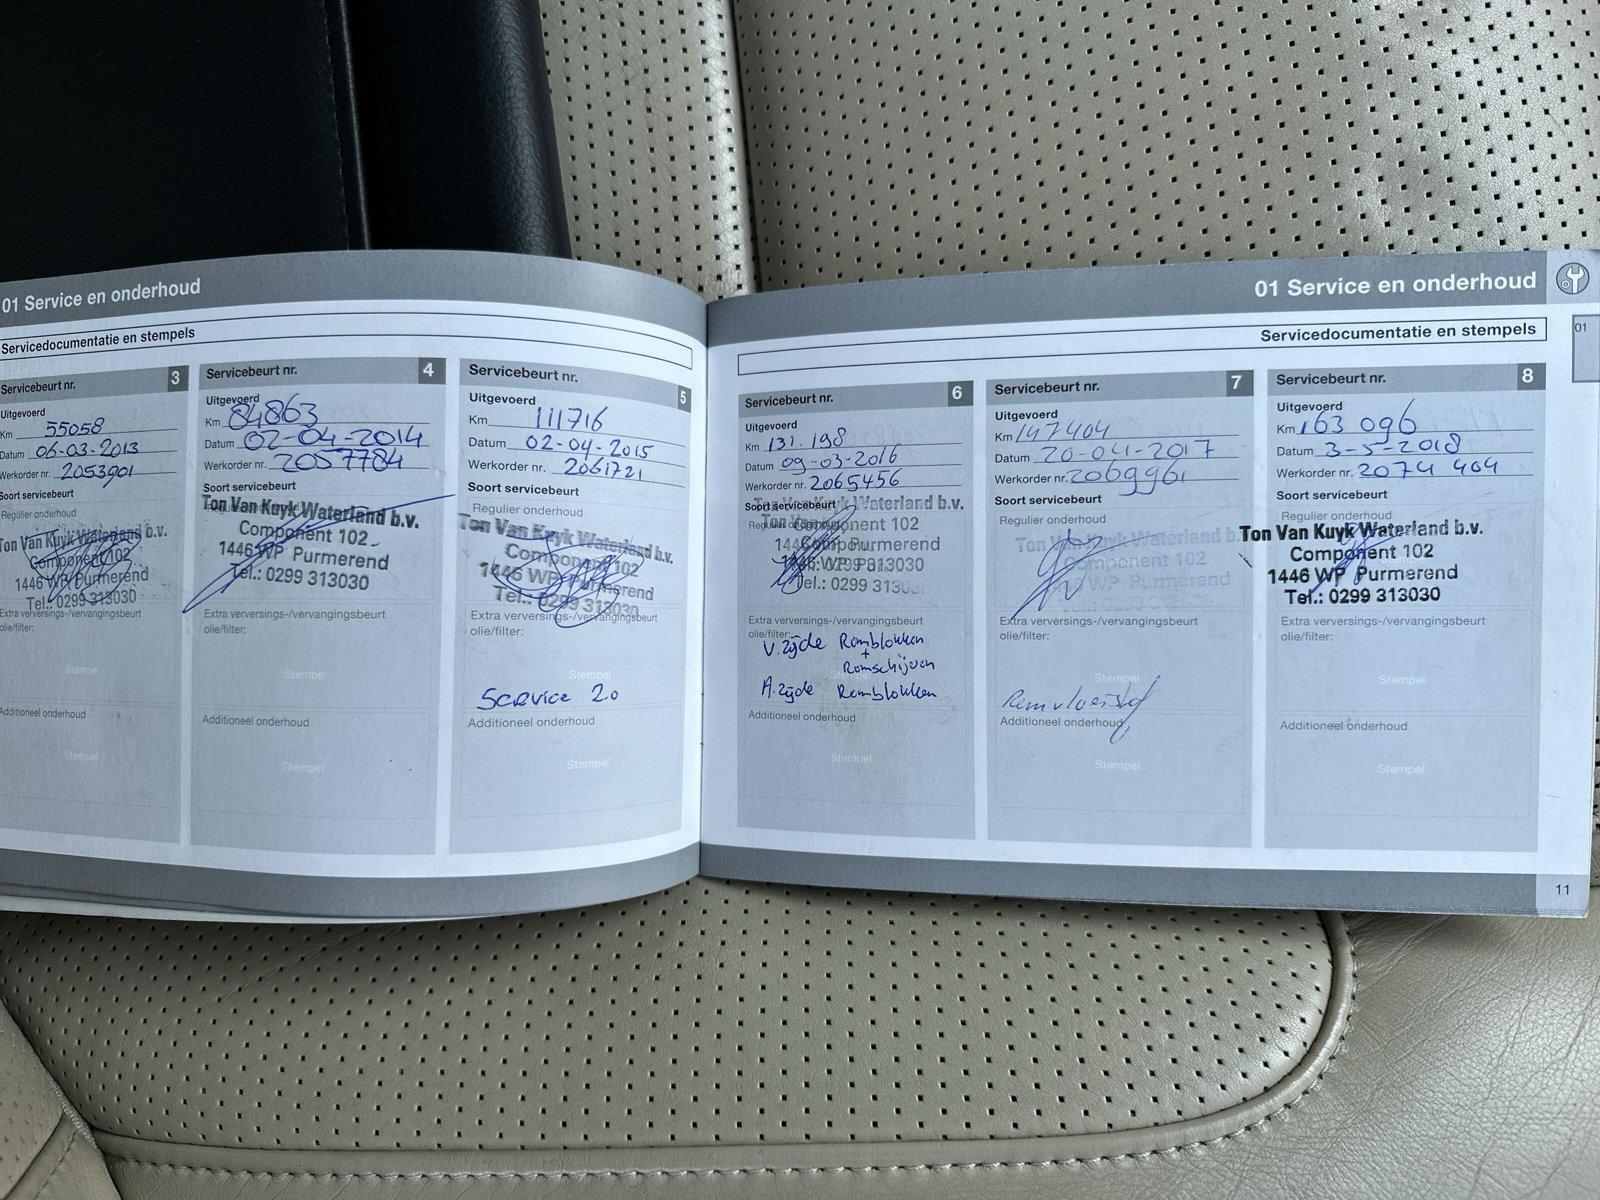 01 Service en onderhoud
Servicedocumentatie en stempels
Servicebeurt nr. 3
Uitgevoerd
Km 55058
Datum 06-03-2013
Werkorder nr. 2053901
Soort servicebeurt
Regulier onderhoud
Ton Van Kuyk Waterland b.v.
Component 102
1446 WP Purmerend
Tel.: 0299 313030
Extra verversings-/vervangingsbeurt
olie/filter:
Stempel
Additioneel onderhoud
Stempel
Servicebeurt nr. 4
Uitgevoerd
Km 84863
Datum 02-04-2014
Werkorder nr. 2057784
Soort servicebeurt
Ton Van Kuyk Waterland b.v.
Component 102
1446 WP Purmerend
Tel.: 0299 313030
Extra verversings-/vervangingsbeurt
olie/filter:
Stempel
Additioneel onderhoud
Stempel
Servicebeurt nr. 5
Uitgevoerd
Km 111716
Datum 02-04-2015
Werkorder nr. 2061721
Soort servicebeurt
Regulier onderhoud
Ton Van Kuyk Waterland b.v.
Component 102
1446 WP Purmerend
Tel.: 0299 313030
Extra verversings-/vervangingsbeurt
olie/filter:
Stempel
Service 2.0
Additioneel onderhoud
Stempel
01 Service en onderhoud
01
Servicedocumentatie en stempels
Servicebeurt nr. 6
Uitgevoerd
Km 131.198
Datum 09-03-2016
Werkorder nr. 2065456
Soort servicebeurt
Regulier onderhoud
Ton Van Kuyk Waterland b.v.
Component 102
1446 WP Purmerend
Tel.: 0299 313030
Extra verversings-/vervangingsbeurt
olie/filter:
V.zijde Remblokken
+
Remschijven
Stempel
A.zijde Remblokken
Additioneel onderhoud
Stempel
Servicebeurt nr. 7
Uitgevoerd
Km 147404
Datum 20-04-2017
Werkorder nr. 2069961
Soort servicebeurt
Regulier onderhoud
Ton Van Kuyk Waterland b.v.
Component 102
1446 WP Purmerend
Extra verversings-/vervangingsbeurt
olie/filter:
Stempel
Remvloeistof
Additioneel onderhoud
Stempel
Servicebeurt nr. 8
Uitgevoerd
Km 163 096
Datum 3-5-2018
Werkorder nr. 2074 404
Soort servicebeurt
Regulier onderhoud
Ton Van Kuyk Waterland b.v.
Component 102
1446 WP Purmerend
Tel.: 0299 313030
Extra verversings-/vervangingsbeurt
olie/filter:
Stempel
Additioneel onderhoud
Stempel
11